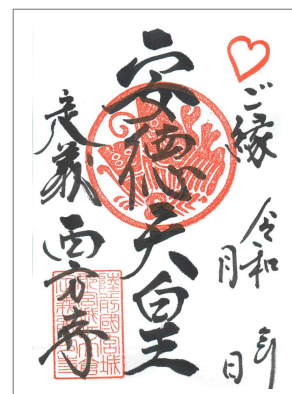 ♡ご縁
令和 年
月 日
安徳天皇
定義 西方寺